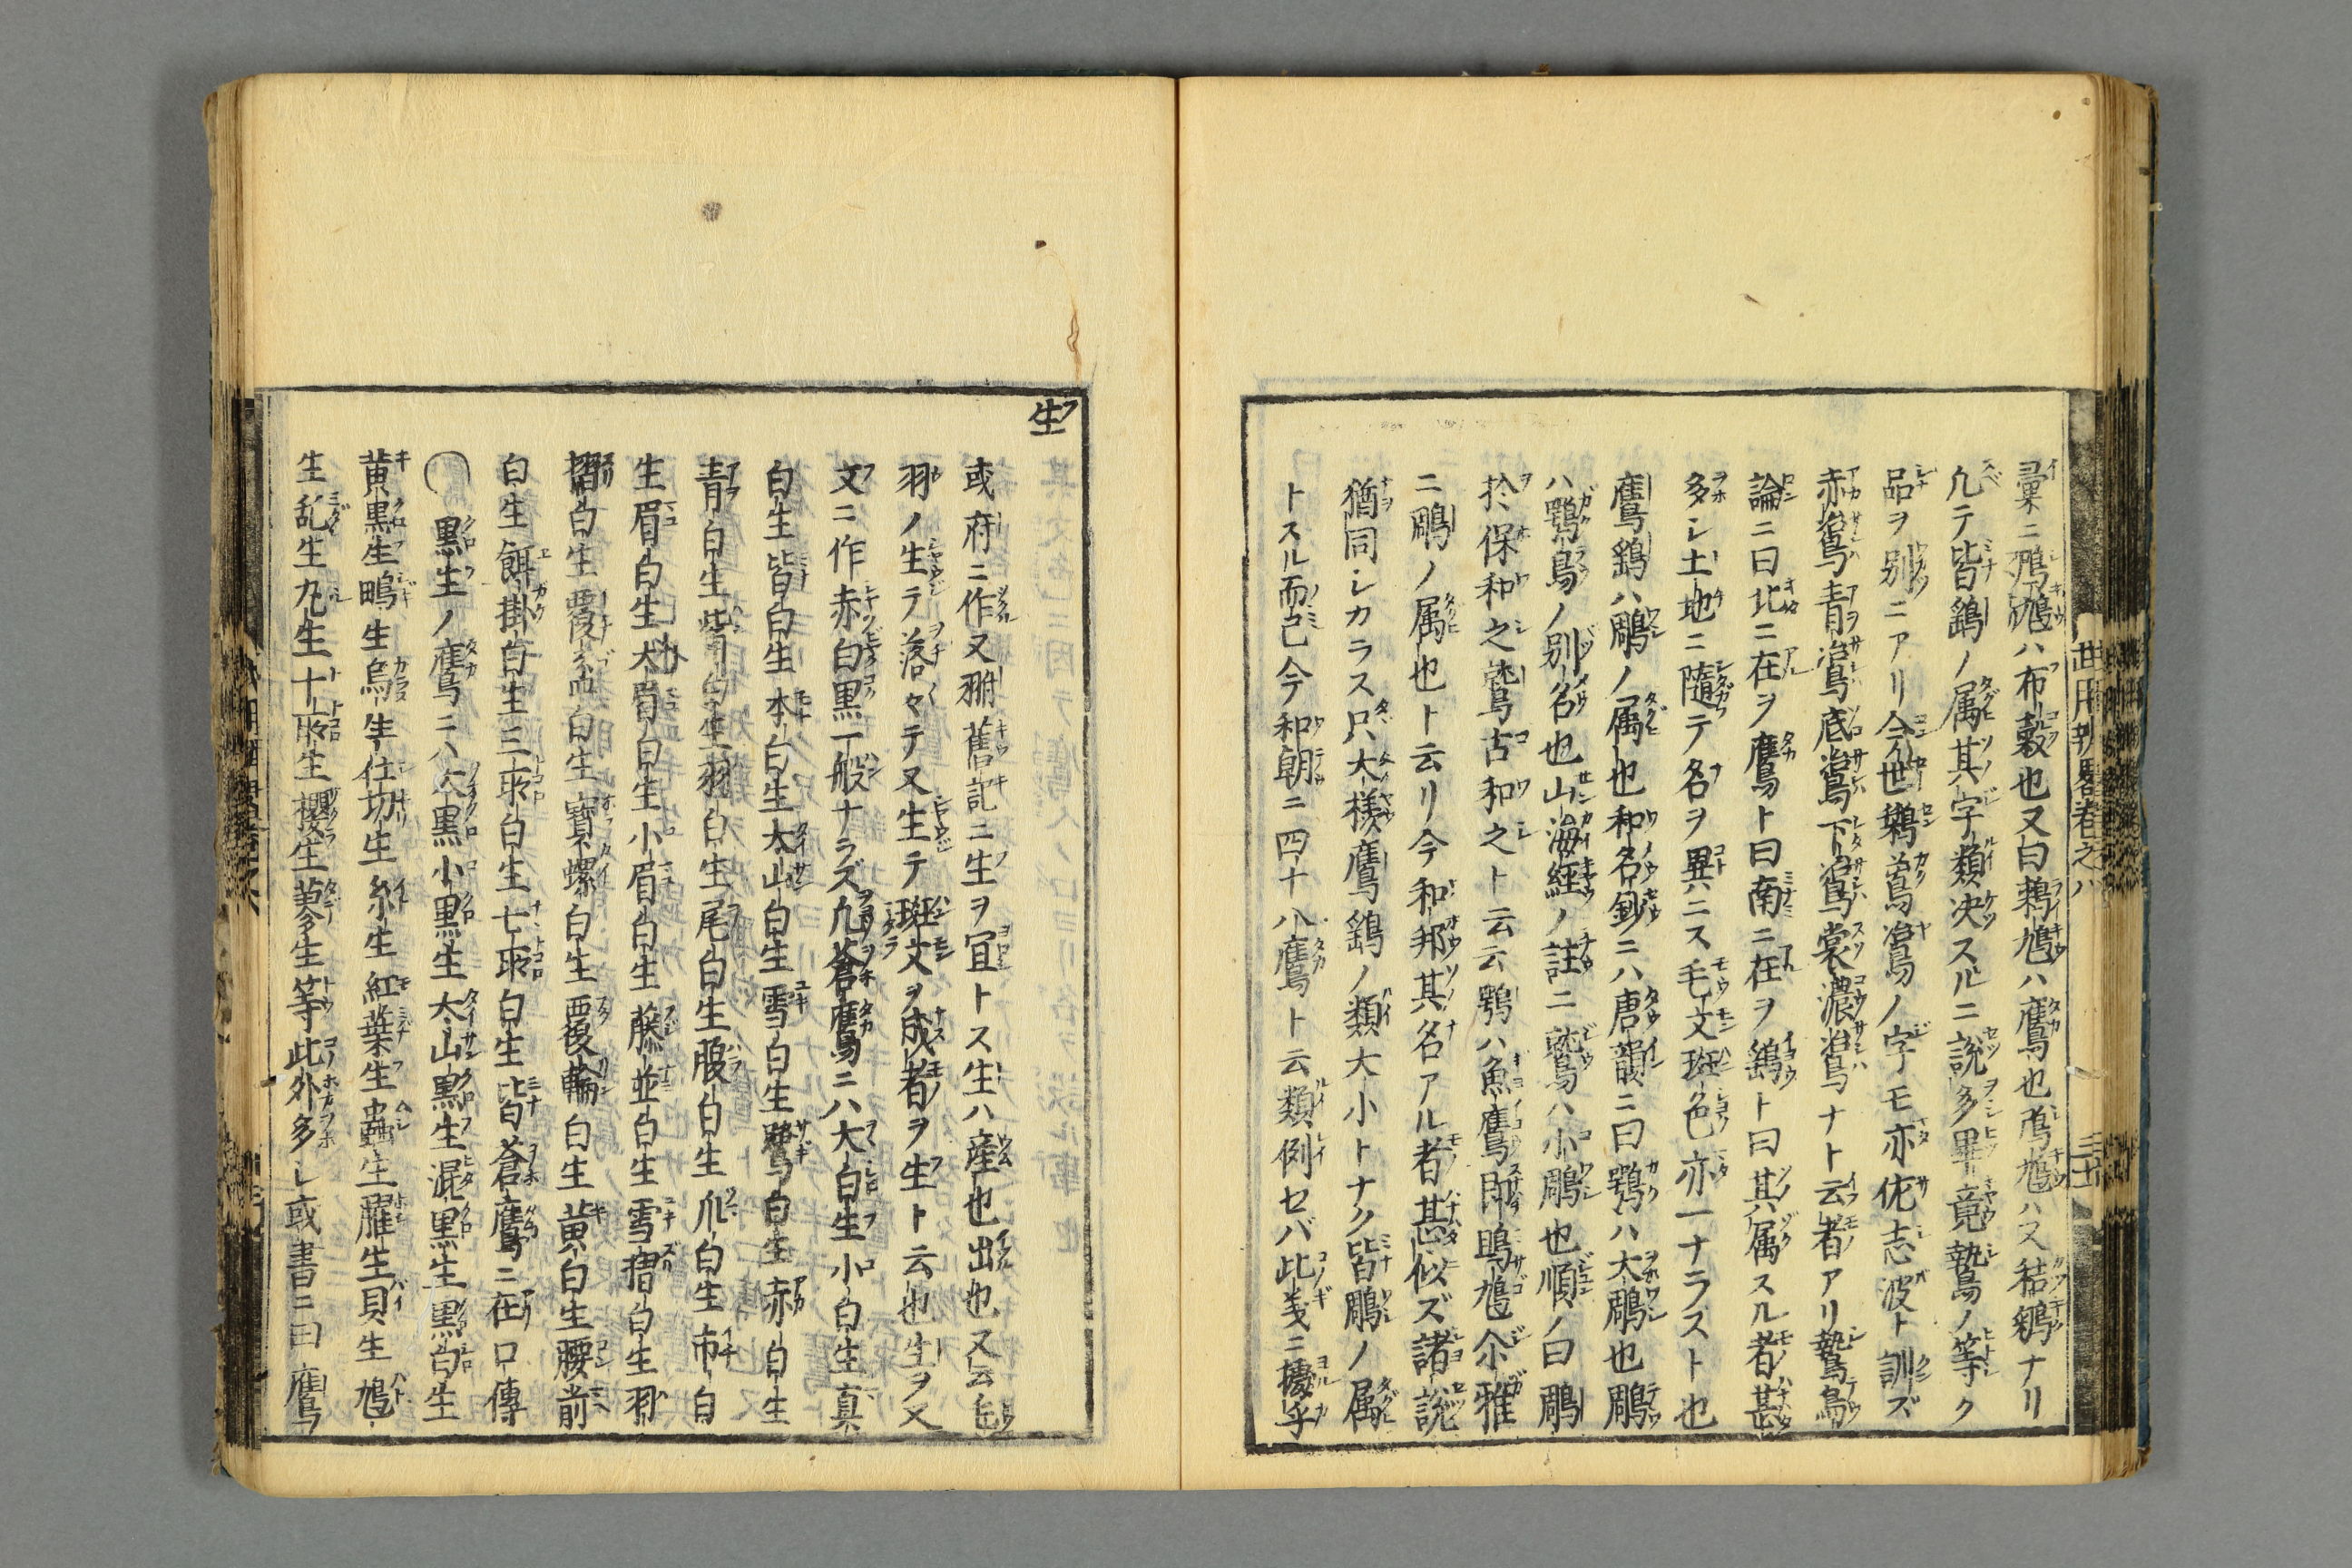 彙ニ鳲鳩ハ布穀也又曰鶈鳩ハ鷹也鳲鳩ハス秸鵴ナリ
凡テ皆鷂ノ属其字類决スルニ説多畢竟鷙ノ等ク
品ヲ別ニアリ今世ノ字モ亦佐志波ト訓ズ
赤鵟青鵟底鵟下鵟裳濃鵟ナト云者アリ鷙鳥
論ニ曰北ニ在ヲ鷹ト曰南ニ在ヲ鷂ト曰其属スル者甚
多シ土地ニ隨テ名ヲ異ニス毛文斑色亦一ナラスト也
鷹鷂ハ鵰ノ属也和名鈔ニハ唐韻ニ曰鶚ハ大鵰也鵰
ハ鶚鳥ノ别名也山海經ノ註ニ鷲ハ小鵰也順ノ曰鵰
於保和之鷲古和之ト云云鶚ハ魚鷹即鴡鳩尒雅
ニ鵰ノ属也ト云リ今和邦其名アル者甚似ズ諸説
猶同シカラス只大様鷹鷂ノ類大小トナク皆鵰ノ属
トスル而已今和朝ニ四十八鷹ト云類例セバ此義ニ據乎
世用 卷之八
生
或府ニ作又翈舊記ニ生ヲ宜トス生ハ産也出也又云毛
羽ノ生テ落々テ又生テ斑文ヲ成者ヲ生ト云也生ヲ又
文ニ作赤白黒一般ナラズ凡蒼鷹ニハ大白生小白生真
白生皆白生本白生大山白生雪白生鷺白生赤白生
青白生觜白生羽白生尾白生腹白生爪白生市白
生眉白生大眉白生小眉白生藤並白生雪摺白生羽
摺白生覆盆白生寳螺白生覆輪白生黄白生腰前
白生餌掛白生三所白生七所白生皆蒼鷹ニ在口傳
○黒生ノ鷹ニハ大黒小黒生大山黒生混黒生黒白生
黄黒生鴫生烏生位切生糸生紅葉生蟲生羅生貝生鳩
生乱生丸生十所生櫻生蓼生等此外多シ或書ニ曰鷹